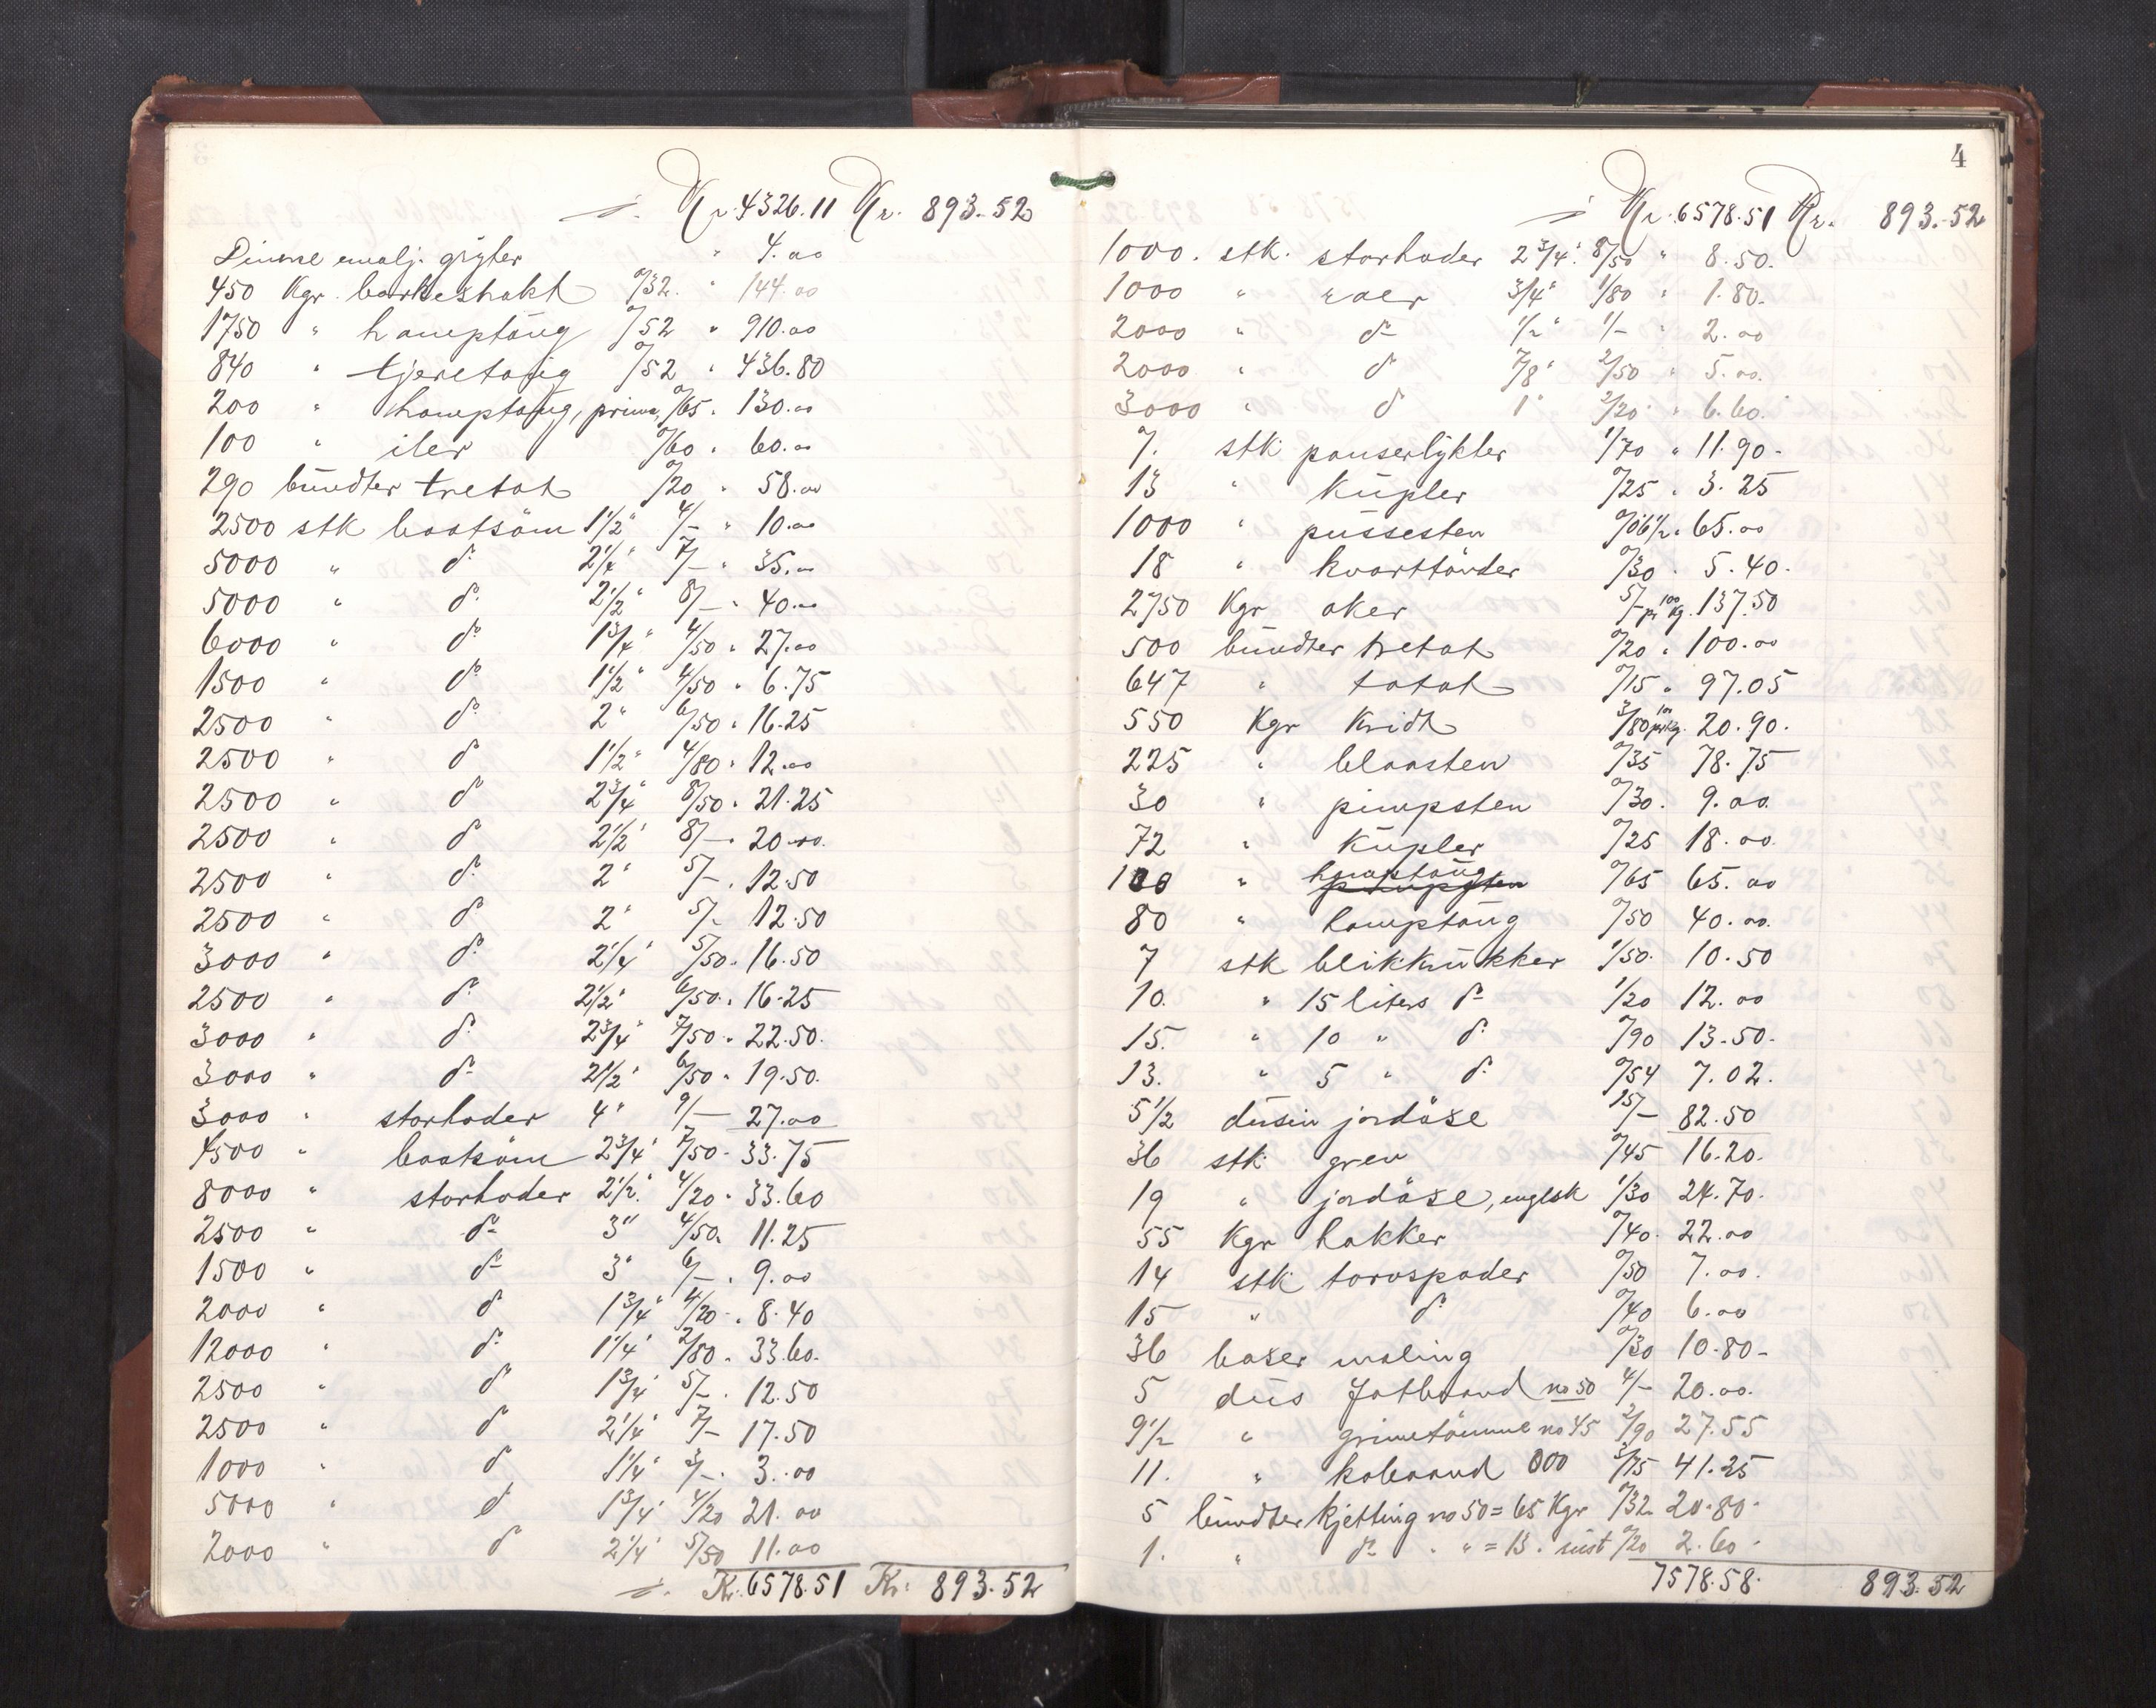 Kr. 4326.11 Kr. 893.52
Divrse emalj. gryter " 4.00
450 Kgr. barkeshakt 0/32. " 144.00
1750 " hamptoug 0/52 " 910.00
840 " tjeretoug 0/52 " 436.80
200 " hamptoug, prima, 0/65 " 130.00
100 " iler 0/60 " 60.00
290 bundter tretat 0/20 " 58.00
2500 stk baatsöm 1 1/2" 4/- " 10.00
5000 " do 2 1/4" 7/- " 35.00
5000 " do 2 1/2" 8/- " 40.00
6000 " do 1 3/4" 4/50 " 27.00
1500 " do 1 1/2" 4/50 " 6.75
2500 " do 2" 6/50 " 16.25
2500 " do 1 1/2" 4/80 " 12.00
2500 " do 2 3/4" 8/50 " 21.25
2500 " do 2 1/2" 8/- " 20.00
2500 " do 2" 5/- " 12.50
2500 " do 2" 5/- 12.50
3000 " do 2 1/4" 5/50 " 16.50
2500 " do 2 1/2" 6/50 " 16.25
3000 " do 2 3/4" 7/50 " 22.50
3000 " do 2 1/2" 6/50 " 19.50
3000 " storhoder 4" 9/- 27.00
4500 " baatsöm 2 3/4" 7/50 " 33.75
8000 " storhoder 2 1/2" 4/20 " 33.60
2500 " do 3" 4/50 " 11.25
1500 " do 3" 6/- " 9.00
2000 " do 1 3/4" 4/20 " 8.40
12000 " do 1 1/4" 2/80 " 33.60
2500 " do 1 3/4" 5/- " 12.50
2500 " do 2 1/4" 7/- 17.50
1000 " do 1 1/4" 3/- " 3.00
5000 " do 1 3/4" 4/20 21.00
2000 " do 2 1/4" 5/50 11.00
Kr. 6578.51 Kr. 893.52
4
Kr. 6578.51 Kr. 893.52
1000. stk. storhoder 2 3/4" 8/50 " 8.50
1000 " roer 3/4" 1/80 " 1.80
2000 " do 1/2" 1/- " 2.00
2000 " do 7/8" 2/50 " 5.00
3000 " do 1" 2/20 " 6.60
7. stk panserlykter 1/70 " 11.90
13 " Kupler 0/25 " 3.25
1000 " pussesten 0/06 1/2 " 65.00
18 " kvarttönder 0/30 " 5.40
2750 Kgr oker 5/- pr 100 Kg. 137.50
500 bundter tretat 0/20 " 100.00
647 " totat 0/15 " 97.05
550 Kgr Kridt 3/80 pr 100 kg. 20.90
225 " blaasten 0/35 78.75
30 " pimpsten 0/30 9.00
72 " Kupler 0/25 18.00
100 " hamptoug 0/65 65.00
80 " hamptoug 0/50 40.00
7 stk blikkrukker 1/50 10.50
10. " 15 liters do 1/20 12.00
15. " 10 " do 0/90 13.50
13. " 5 " do 0/54 7.02
5 1/2 dusin jordöxe 15/- 82.50
36 stk grev 0/45 16.20
19 " jordöxe, englsk 1/30 24.70
55 Kgr hakker 0/40 22.00
14 stk torvspader 0/50 7.00
15 " do 0/40 6.00
36 boxer maling 0/30 10.80
5 dus Fatbaand no 50 4/- 20.00
9 1/2 " grimetömme no 45 2/90 27.55
11. " kobaand 000 3/75 41.25
5 bundter kjetting no 50 = 65 Kgr 0/32 20.80
1. " do " " = 13 " rust 0/20 2.60
7578.58 893.52